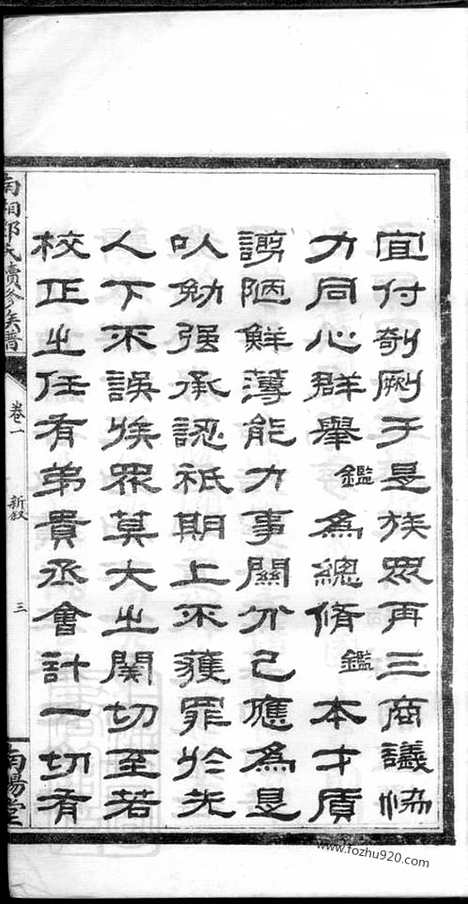 宜付剞劂于是族眾再三商議協
力同心群舉鑑為總脩鑑本才質
謭陋鮮薄能力事關分己應為是
以勉强承認祇期上不獲罪於先
人下不誤族眾莫大之関切至若
校正之任有弟貴丞會計一切有
南湘鄧氏續修族譜
卷一
新敘
三
南陽堂
www.fozhu920.com